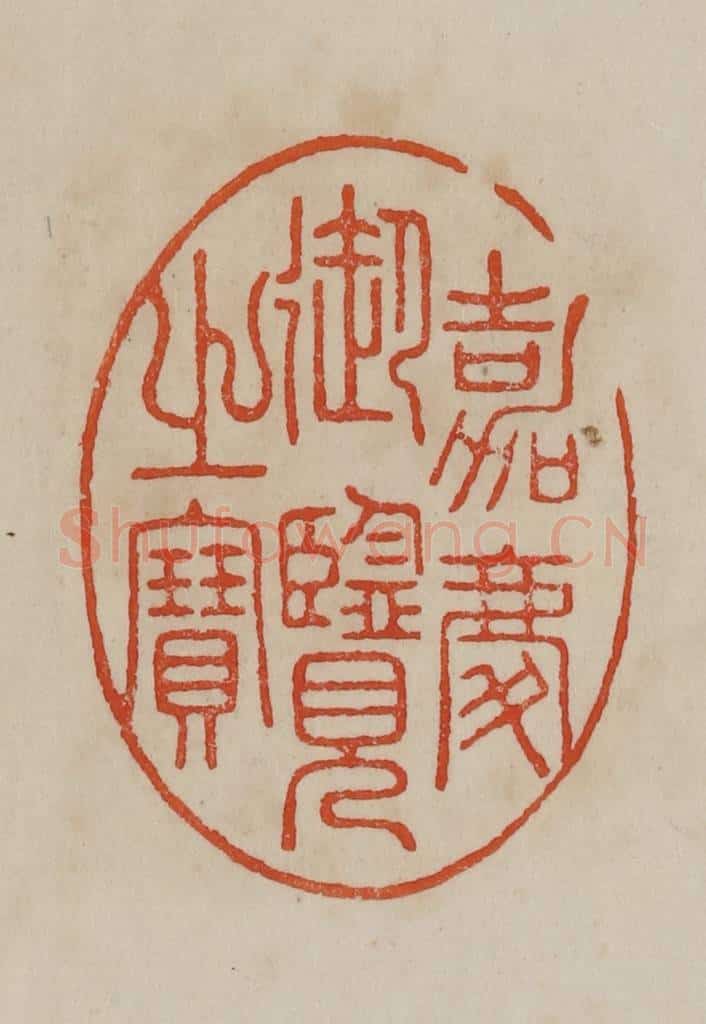 嘉慶
御覽
之寶
Shufawang.CN